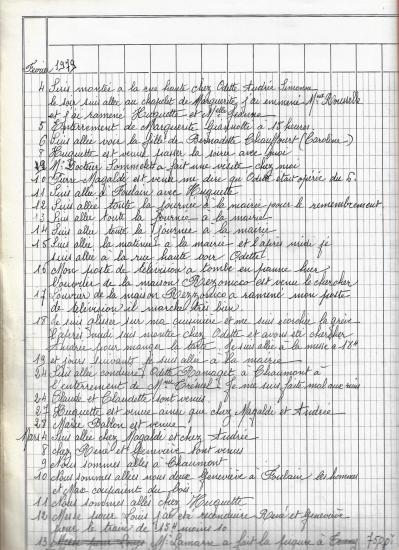 Février 1979
4 Suis montée à la rue haute chez Odette Andrée Simone
le soir suis allée au chapelet de Marguerite j'ai emmené Mme Rousselle
et j'ai ramené Huguette et Melle
5 Enterrement de Marguerite à 15 heures
6 Suis allée voir la fille de Bernadette Chauffourt (Caroline)
8 Huguette est venue passer la soirée avec moi
Mr Docteur Pommelet a fait une visite chez moi
10 Mme Magalde est venue me dire qu'Odette était opérée du
11 Suis allée à Foulain avec Huguette
12 Suis allée toute la journée à la mairie pour le remembrement
13 Suis allée toute la journée à la mairie
14 Suis allée toute la journée à la mairie
15 Suis allée la matinée à la mairie et l'après midi je
suis allée à la rue haute voir Odette
16 Mon poste de télévision a tombé en panne hier
l'ouvrier de la maison Rezzonico est venu le chercher
17 L'ouvrier de la maison Rezzonico a ramené mon poste
de télévision il marche très bien
18 Je suis glissée sur ma cuisinière et me suis écorché la
l'après midi suis montée chez Odette et avons été chercher
Andrée pour manger la tarte. Je suis allée à la messe à 18H
19 et jours suivants je suis allée à la mairie
24 Suis allée conduire Odette Ramaget à Chaumont à
l'enterrement de Mme Je me suis fait mal aux reins
24 Claude et Claudette sont venus
27 Huguette est venue ainsi que chez Magalde et Andrée
28 Marie Ballon est venue
Mars 4 Suis allée chez Magalde et chez Andrée
5 chez René et Geneviève sont venus
9 Nous sommes allés à Chaumont
10 Nous sommes allées nous deux Geneviève à Foulain les hommes
et Mac coupaient du bois
11 Nous sommes allés chez Huguette
12 Messe pour Louis j'ai été reconduire René et Geneviève
pour le train de 15H moins 10
13 Mr Lamarre a fait la piqure à 750F